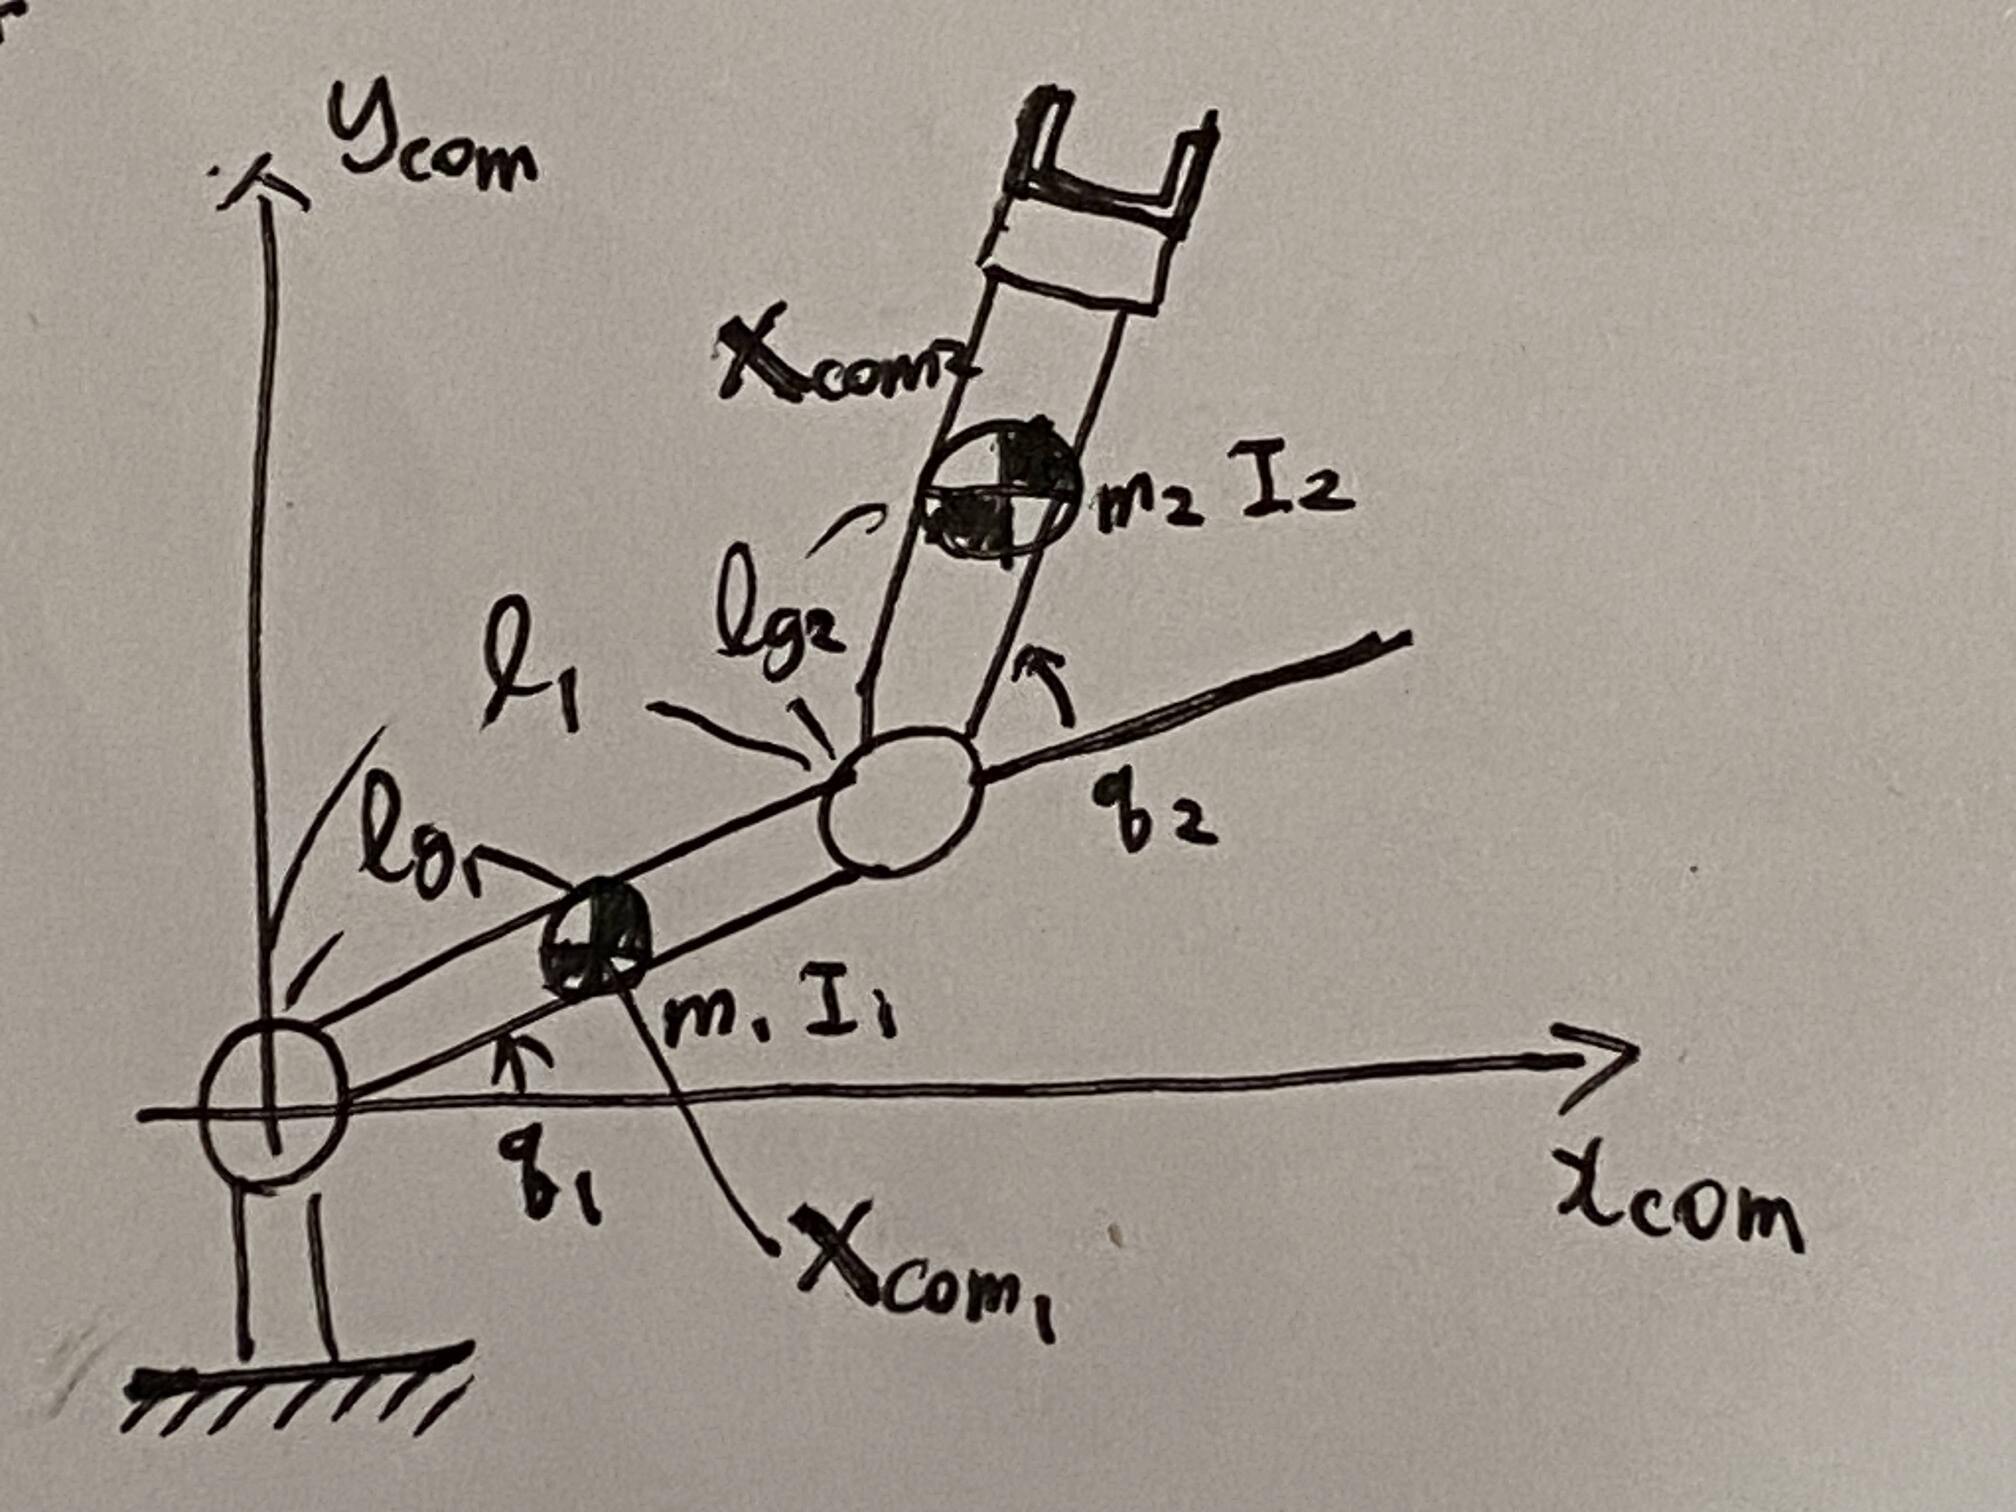 ycom
Xcom2
m2 I2
lg2
l1
lg1
q2
m1 I1
q1
xcom
Xcom1